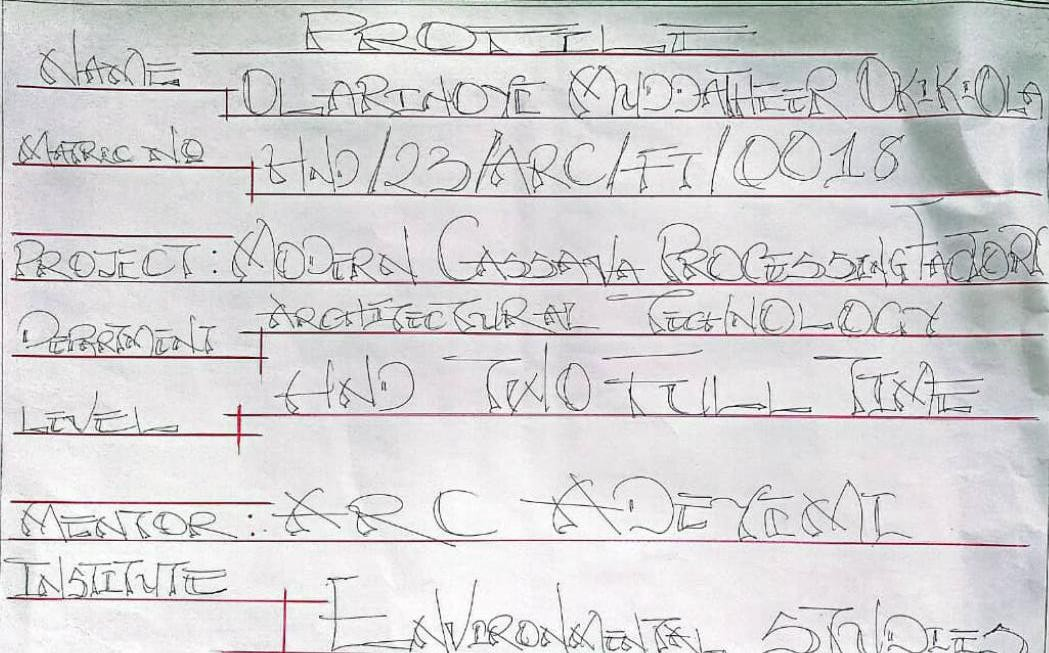 PROFILE
NAME
OLARINOYE MUDDATHEER OKIKIOLA
MATRIC NO
HND/23/ARC/FT/0018
PROJECT: MODERN CASSAVA PROCESSING FACTORY
DEPARTMENT
ARCHITECTURAL TECHNOLOGY
LEVEL
HND TWO FULL TIME
MENTOR: ARC ADEYEMI
INSTITUTE
ENVIRONMENTAL STUDIES